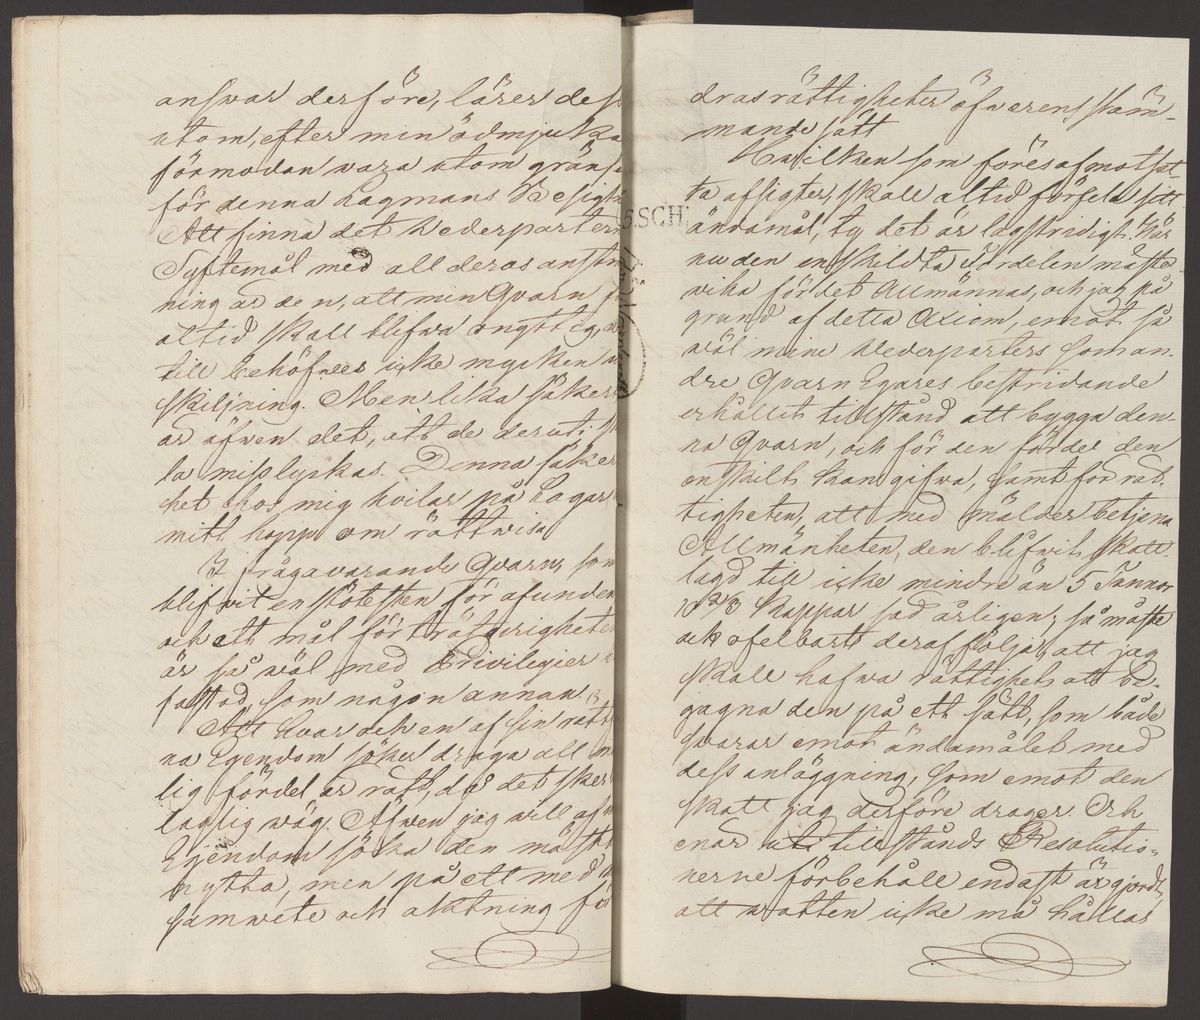 answar derföre, lärer dess
utom, efter min ödmjuka
förmodan wara utom gräns
för denna Lagmans Besigt
Att finna det Wederparters
Syftemål med all deras anstal
ning är den, att min Qvarn f
altid skall blifwa onyttig, der
till behöfves icke mycken ur
skiljning. Men lika säker
är äfwen det, att de deruti sk
la misslyckas. Denna säker
het hos mig hvilar på Lagar
mitt hopp om rättwisa
I frågavarande Qvarn, som
blifwit en stötesten för afunden
och ett mål för träfgirigheten
är så wäl med Privilegier
fästad, som någon annan.
Att hvar och en af sin rätt
na Egendom söker draga all
lig fördel är rätt, då det sker
laglig wäg. Äfwen jag will af m
Egendom söka den mäst
nytta, men på ett med
samwete och aktning för
6.SCH
dras rättigheter öfwerensstäm-
mande sätt
Hvilken som föres af motsat-
ta afsigter, skall altid förfela sitt
ändamål, ty det är lagstridigt. När
nu den enskildta Fördelen måste
vika för det Allmännas, och jag på
grund af detta Axiom, emot så
wäl mine Wederparters som an-
dre Qvarn Egares bestridande
erhållit tillstånd att bygga den-
na Qvarn, och för den fördel den
enskilt kan gifwa, samt för rät-
tigheten, att med mälder betjena
Allmänheten, den blifwit skatt
lagd till icke mindre än 5 Tunnor
10 2/3 kappar säd årligen; så måste
ock ofelbart deraf följa, att jag
skall hafwa rättighet att be-
gagna den på ett sätt, som både
swarar emot ändamålet med
dess anläggning, som emot den
skatt jag derföre drager. Och
enär uti tillstånds Resolutio-
nerne förbehåll endast är gjordt,
att watten icke må hållas